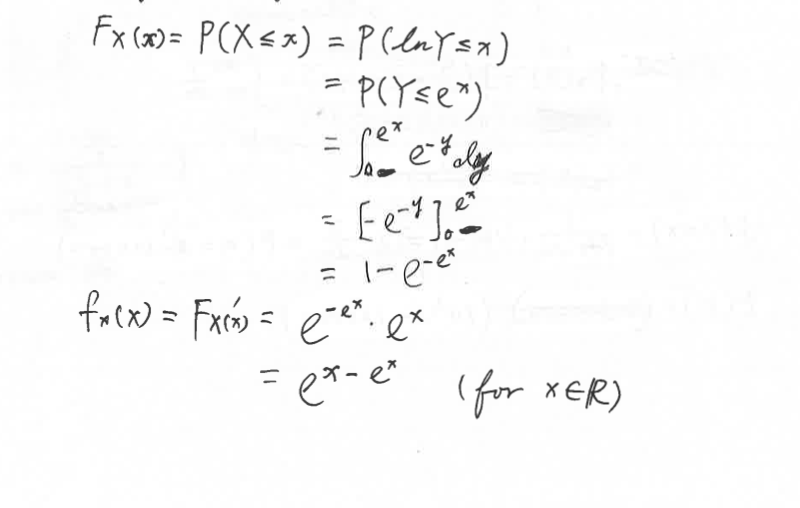 F_X(x) = P(X ≤ x) = P(ln Y ≤ x)
= P(Y ≤ e^x)
= ∫_0^{e^x} e^{-y} dy
= [-e^{-y}]_0^{e^x}
= 1 - e^{-e^x}
f_x(x) = F_X(x)' = e^{-e^x} · e^x
= e^{x - e^x} (for x ∈ ℝ)